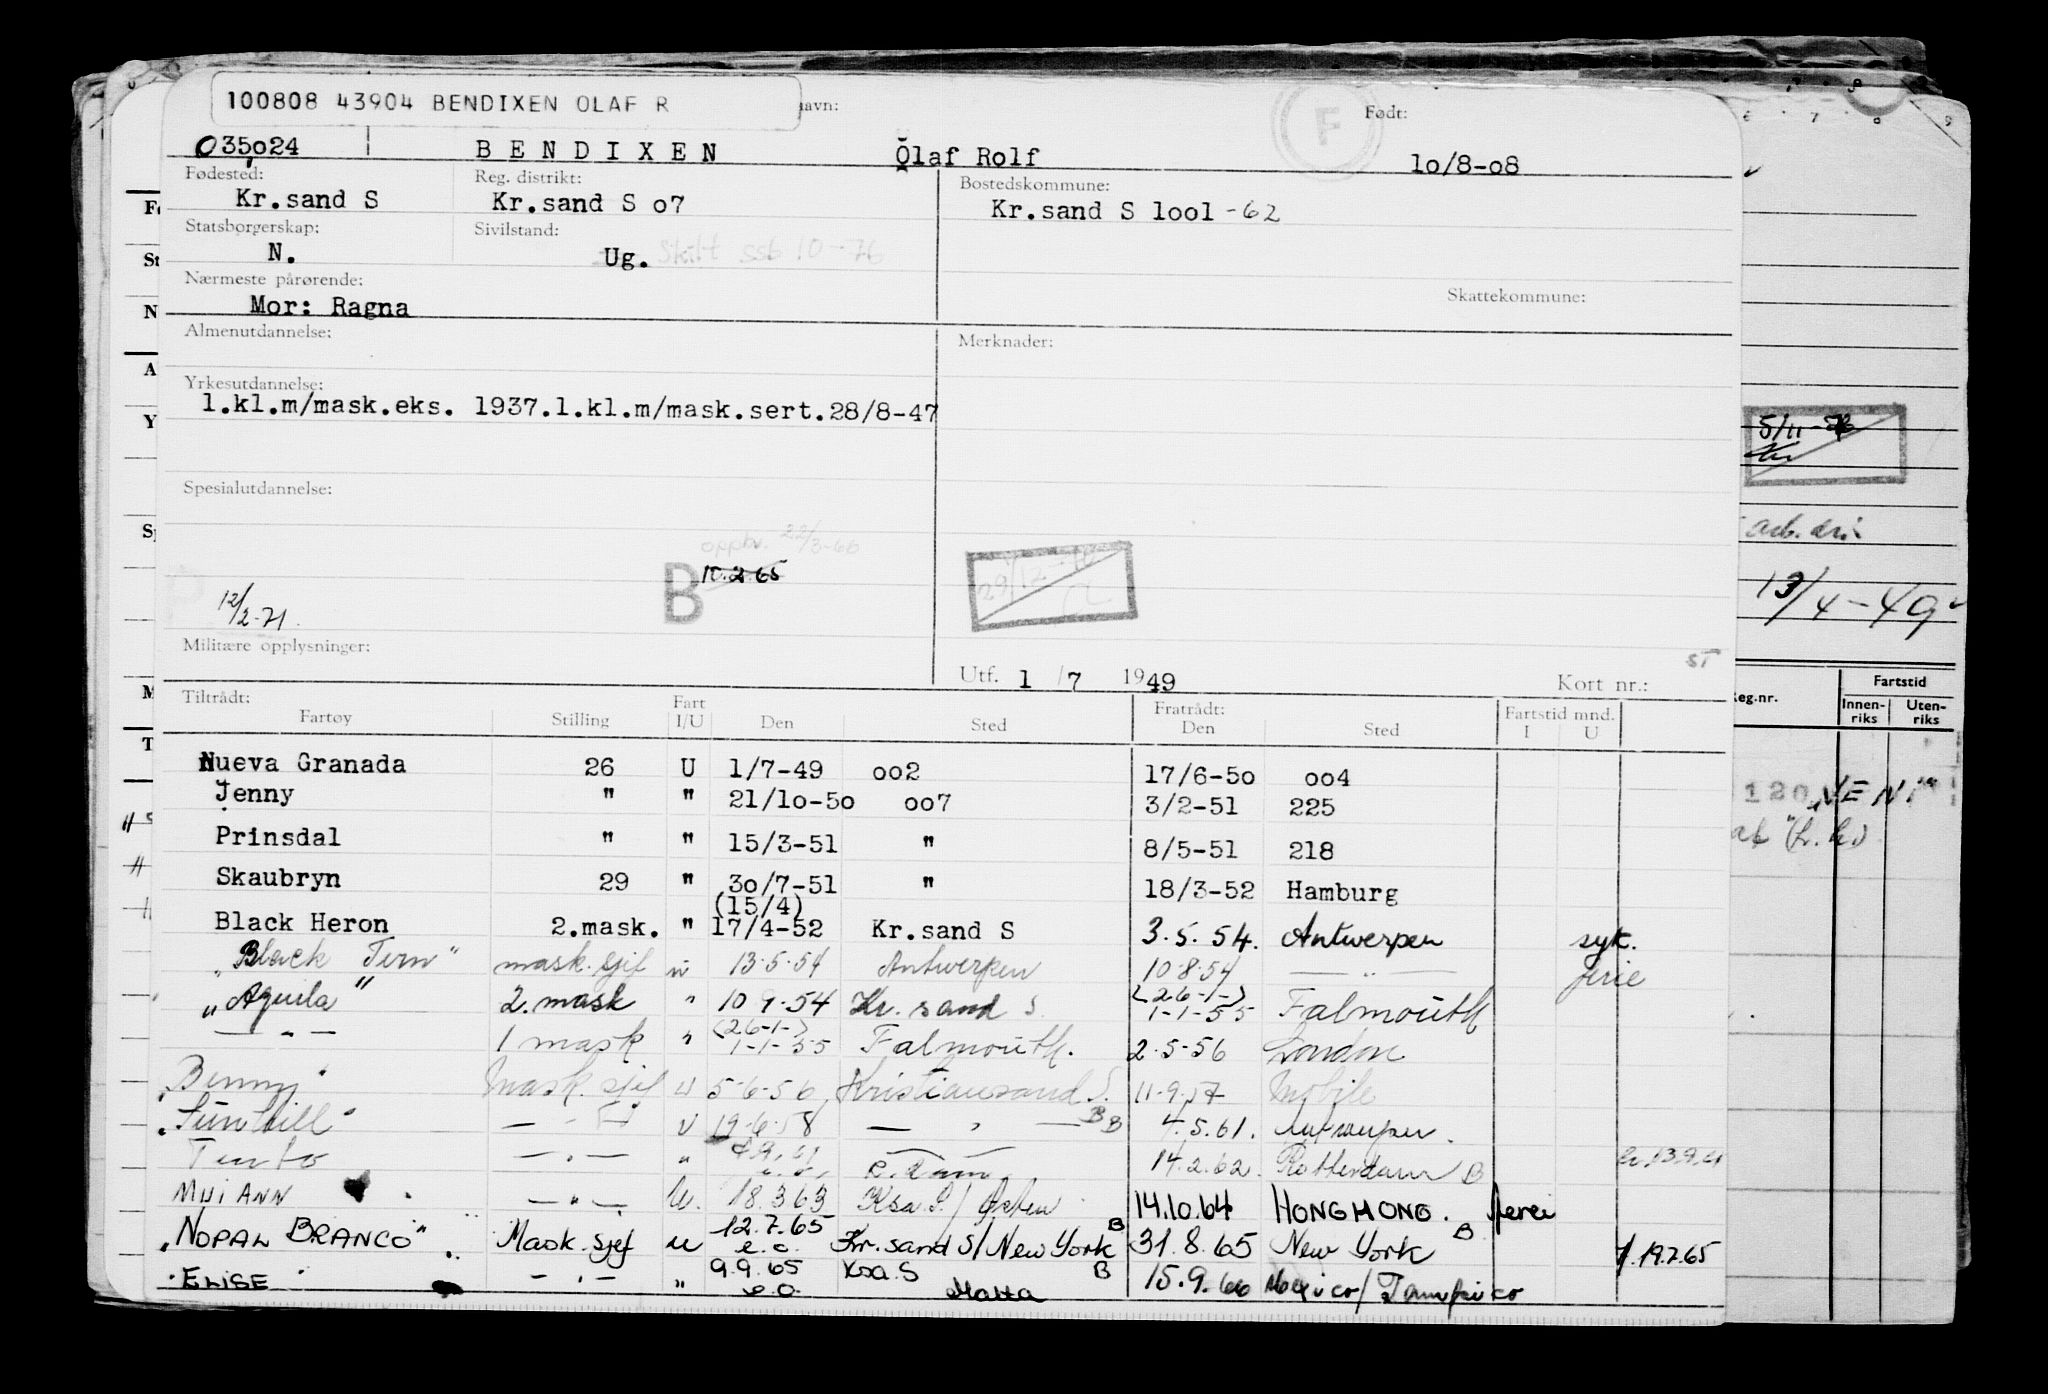 100808 43904 BENDIXEN OLAF R
navn:
Født:
F
035024 BENDIXEN Olaf Rolf 10/8-08
Fødested: Reg. distrikt: Bostedskommune:
Kr.sand S Kr.sand S 07 Kr.sand S 1001 -62
Statsborgerskap: Sivilstand:
N. Ug. Skilt ssb 10-76
Nærmeste pårørende: Skattekommune:
Mor: Ragna
Almenutdannelse: Merknader:
Yrkesutdannelse:
1.kl.m/mask.eks. 1937.1.kl.m/mask.sert.28/8-47
5/11-
Spesialutdannelse:
oppbv. 22/3-66
B
29/12-
12/2-71.
13/4-49
Militære opplysninger:
Utf. 1 /7 1949 Kort nr.:
ST
Tiltrådt: Fart Fratrådt: Fartstid mnd.
Fartøy Stilling I/U Den Sted Den Sted I U
Reg.nr. Fartstid
Innen-riks Uten-riks
Nueva Granada 26 U 1/7-49 002 17/6-50 004
Jenny " " 21/10-50 007 3/2-51 225
Prinsdal " " 15/3-51 " 8/5-51 218
Skaubryn 29 " 30/7-51 " 18/3-52 Hamburg
(15/4)
Black Heron 2.mask. " 17/4-52 Kr.sand S 3.5.54. Antwerpen syk.
"Black Tern" mask.sjef u 13.5.54 Antwerpen 10.8.54 — " — ferie
"Aquila" 2. mask " 10 9.54 Kr. sand S. (26-1-) 1-1-55 Falmouth
— " — 1 mask " (26-1-) 1-1-55 Falmouth. 2.5.56 London
"Benny" Mask.sjef u 5-6-56 Kristiansand S. 11.9.57 Mobile
"Sunhill" — " — U 19.6.58 — " — BB 4.5.61. Antwerpen.
Tento — " — " 14.2.62. Rotterdam B
MUI ANN — " — u. 18.3.63 Ksa S/ 14.10.64 HONGMONG.
"NOPAL BRANCO" Mask.sjef u 12.7.65 e.o. Kr.sand S/New York B 31.8.65 New York B 19.7.65
"ELISE" — " — " 9.9.65 e.o. Ksa.S Malta B 15.9.66 Mexico/Tampico